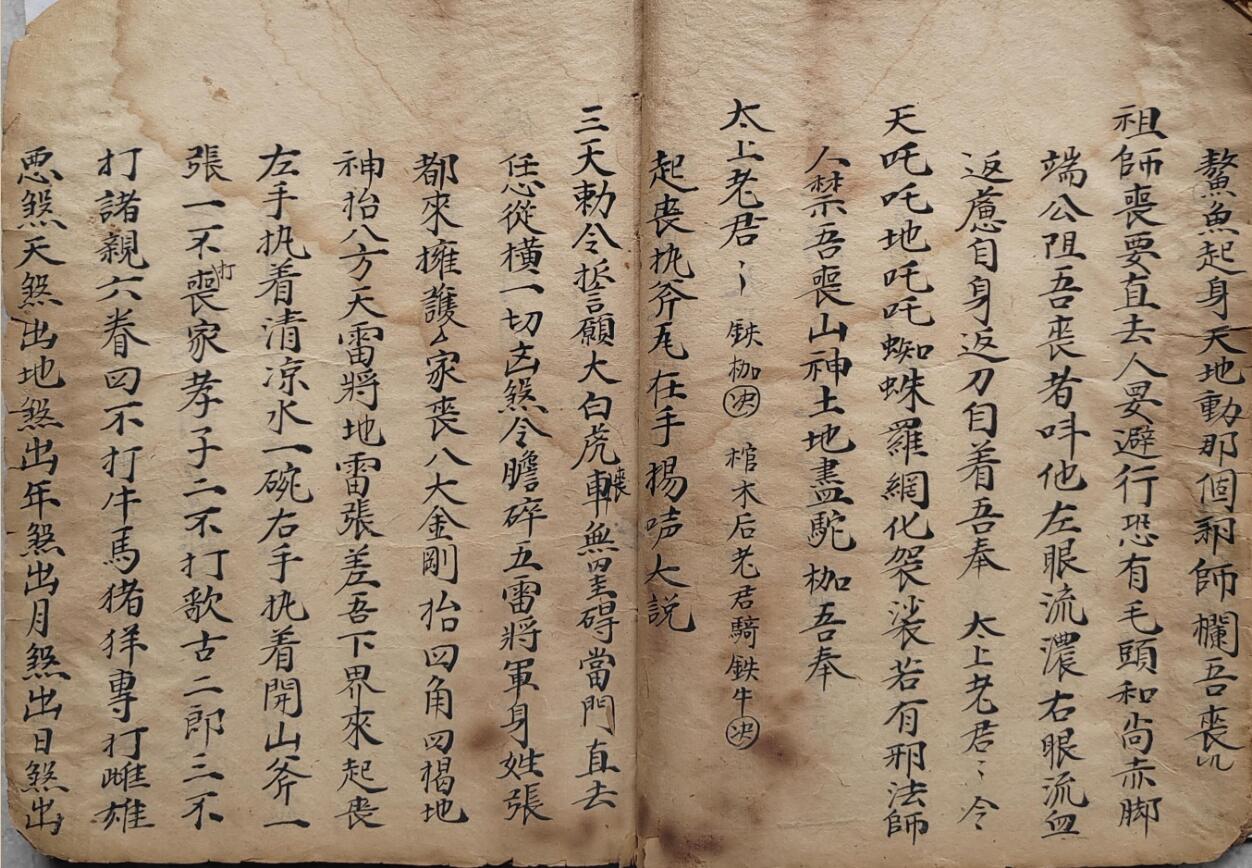 鰲魚起身天地動那個邪師欄吾喪
祖師喪要直去人要避行恐有毛頭和尚赤脚
端公阻吾喪者呌他左眼流濃右眼流血
返慮自身返刀自着吾奉 太上老君〻令
天吒吒地吒吒蜘蛛羅網化袈裟若有邪法師
人禁吾喪山神土地盡駝枷吾奉
太上老君〻 鉄枷决 棺木后老君騎鉄牛决
起喪执斧在手揚声大説
三天勅令誓願大白虎車喪無罣碍當門直去
任您從橫一切㐫煞令膽碎五雷將軍身姓張
都來擁護〻家喪八大金剛抬四角四揭地
神抬八方天雷將地雷張差吾下界來起喪
左手执着清凉水一碗右手执着開山斧一
張一不打喪家孝子二不打歌古二郎三不
打諸親六眷四不打牛馬猪羊專打雌雄
悪煞天煞出地煞出年煞出月煞出日煞出